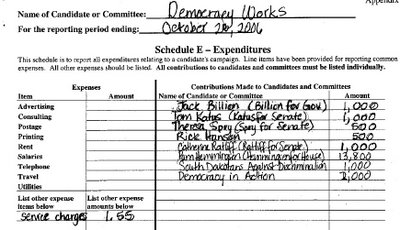 Appendix
Name of Candidate or Committee: Democracy Works
For the reporting period ending: October 26, 2006
Schedule E – Expenditures
This schedule is to report all expenditures relating to a candidate's campaign. Line items have been provided for reporting common
expenses. All other expenses should be listed. All contributions to candidates and committees must be listed individually.
Expenses Contributions Made to Candidates and Committees
Item Amount Name of Candidate or Committee Amount
Advertising Jack Billion (Billion for Gov.) 1,000
Consulting Tom Katus (Katus for Senate) 1,000
Postage Theresa Spry (Spry for Senate) 500
Printing Rick Hanson 500
Rent Catherine Ratliff (Ratliff for Senate) 1,000
Salaries Pam Hemmingson (Hemmingson for House) 13,800
Telephone South Dakotans Against Discrimination 1,000
Travel Democracy in Action 2,000
Utilities
List other expense List other expense
items below amounts below
service charges 1.55